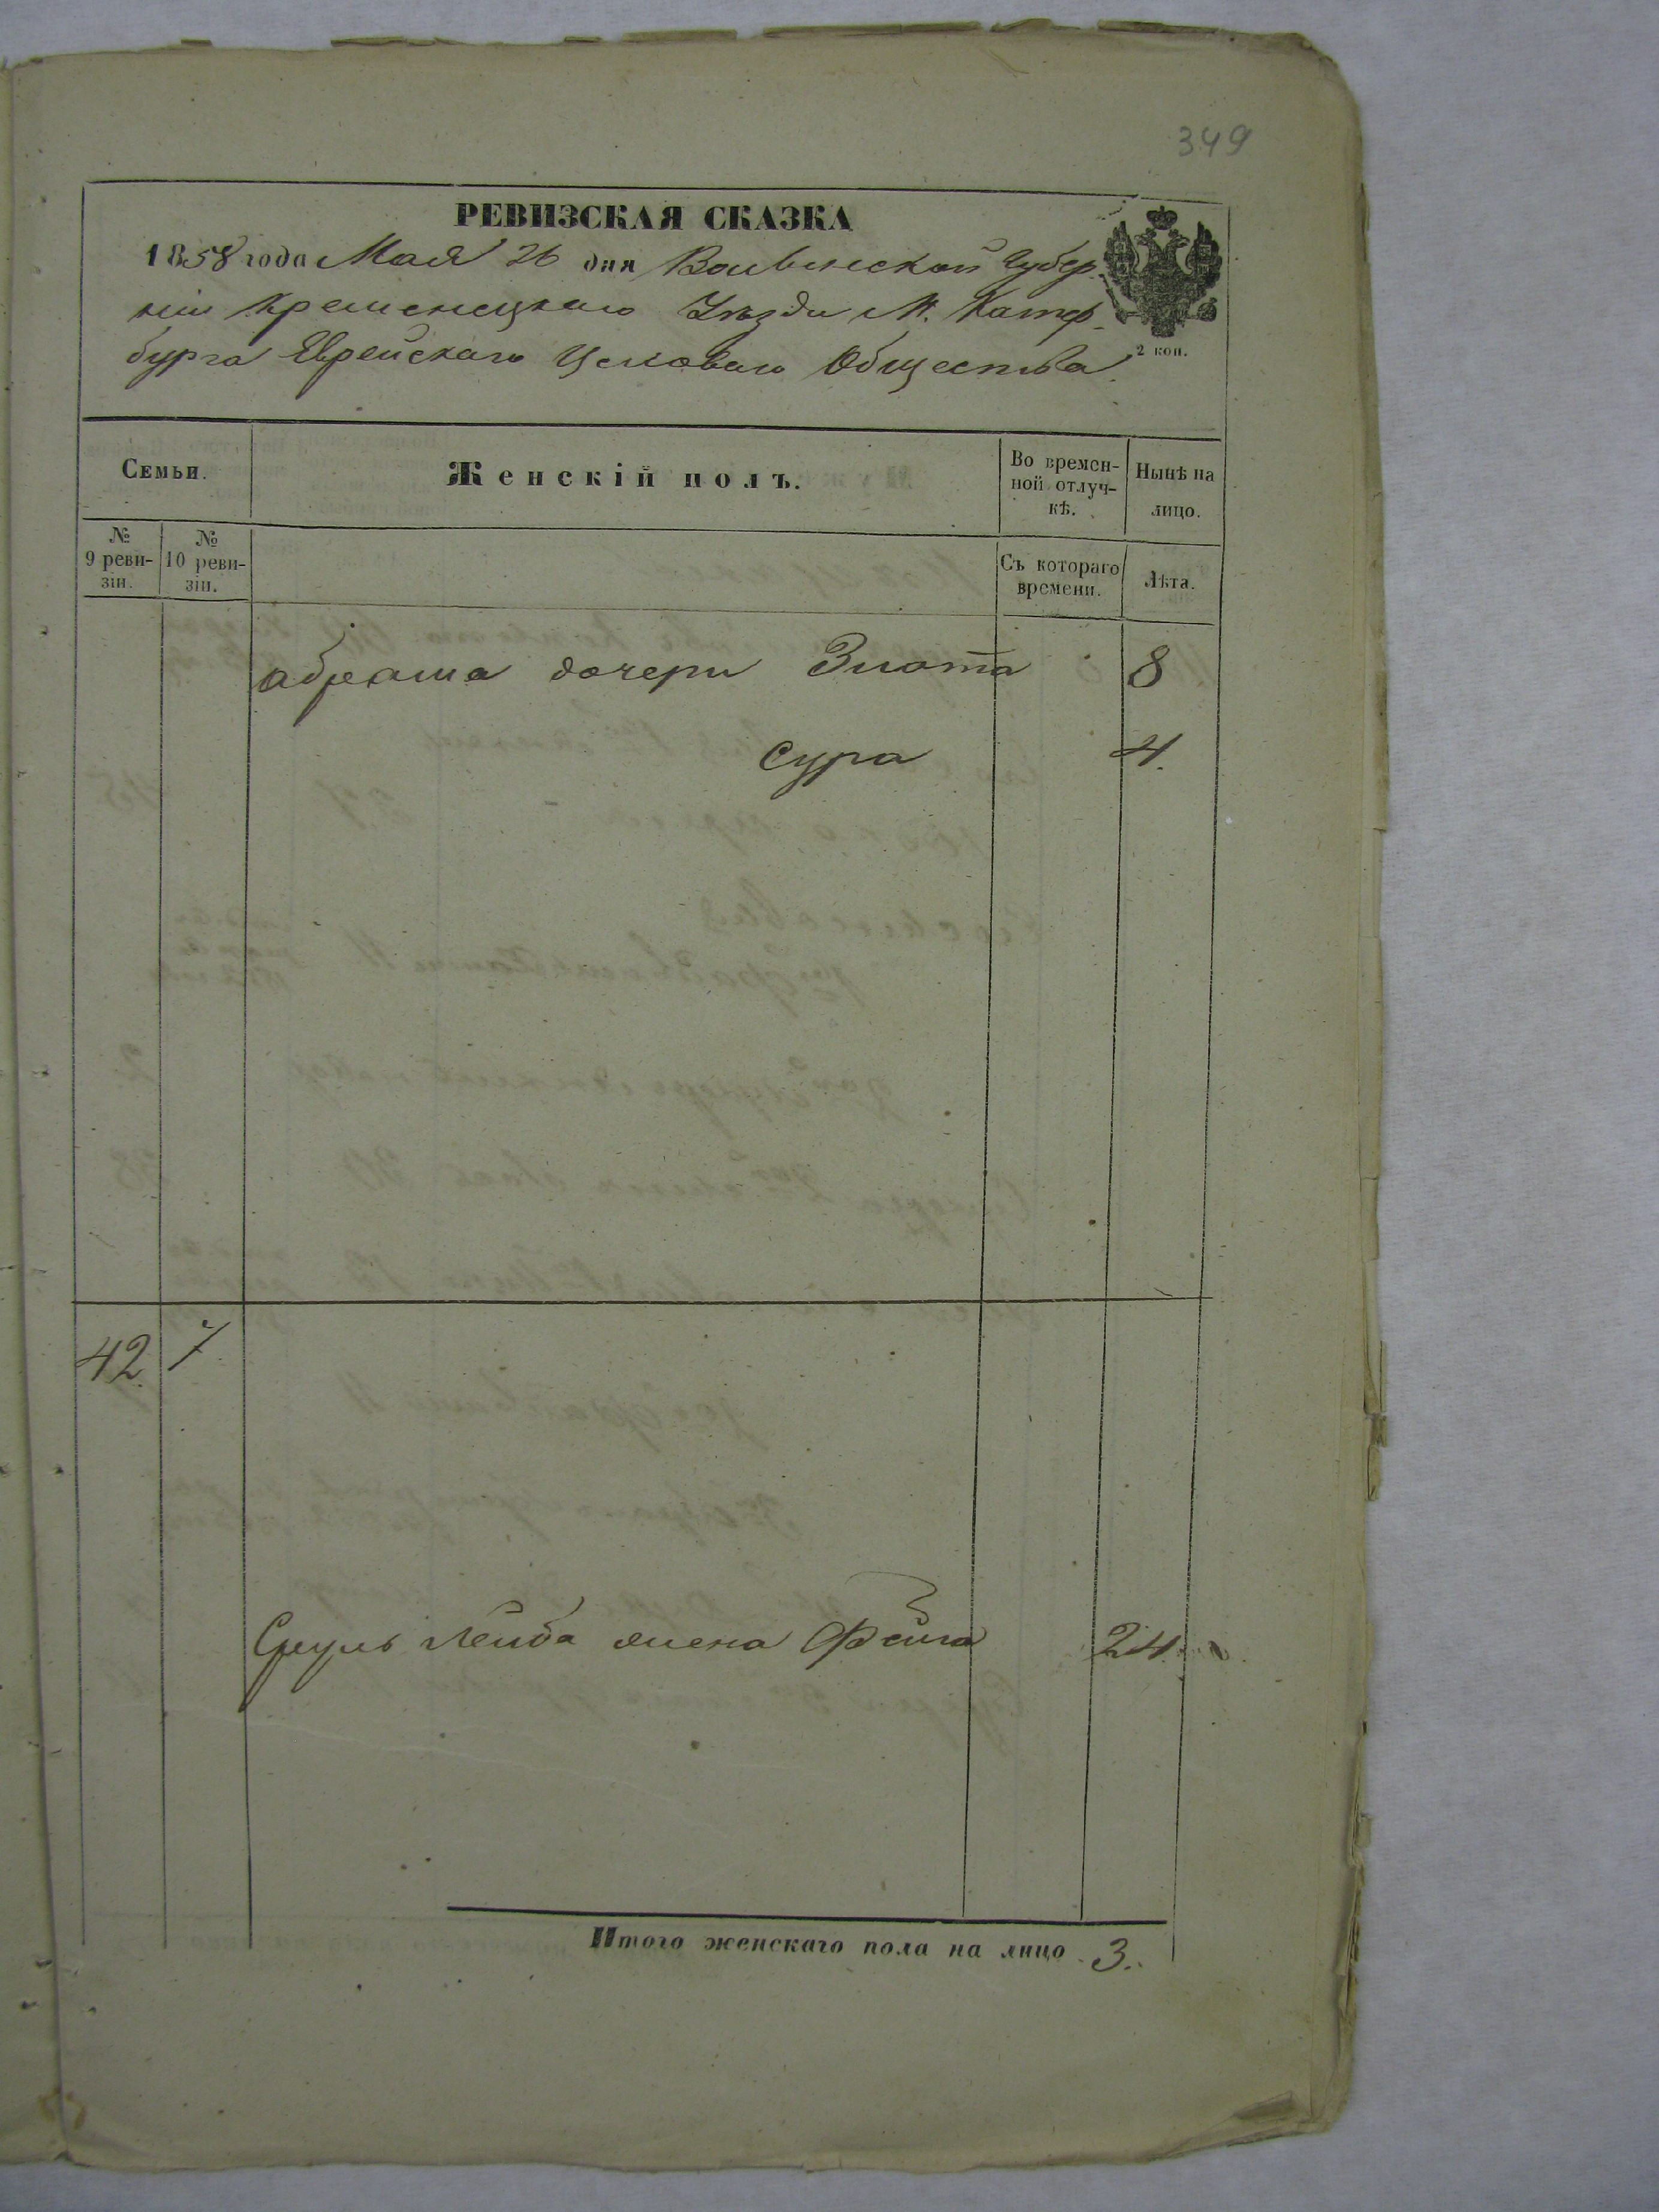 349
РЕВИЗСКАЯ СКАЗКА
1858 года Мая 26 дня Волынской Губер-
ніи Кременецкаго Уѣзда М. Катер-
бурга Еврейскаго Общества
2 коп.
Семьи.
Женскій полъ.
Во времен-
ной отлуч-
кѣ.
Нынѣ на
лицо.
№
9 реви-
зіи.
№
10 реви-
зіи.
Съ котораго
времени.
Лѣта.
абрама дочери Злота 8
Сура 4.
42 7
Срулъ Лейба жена Фейга 24
Итого женскаго пола на лицо 3.